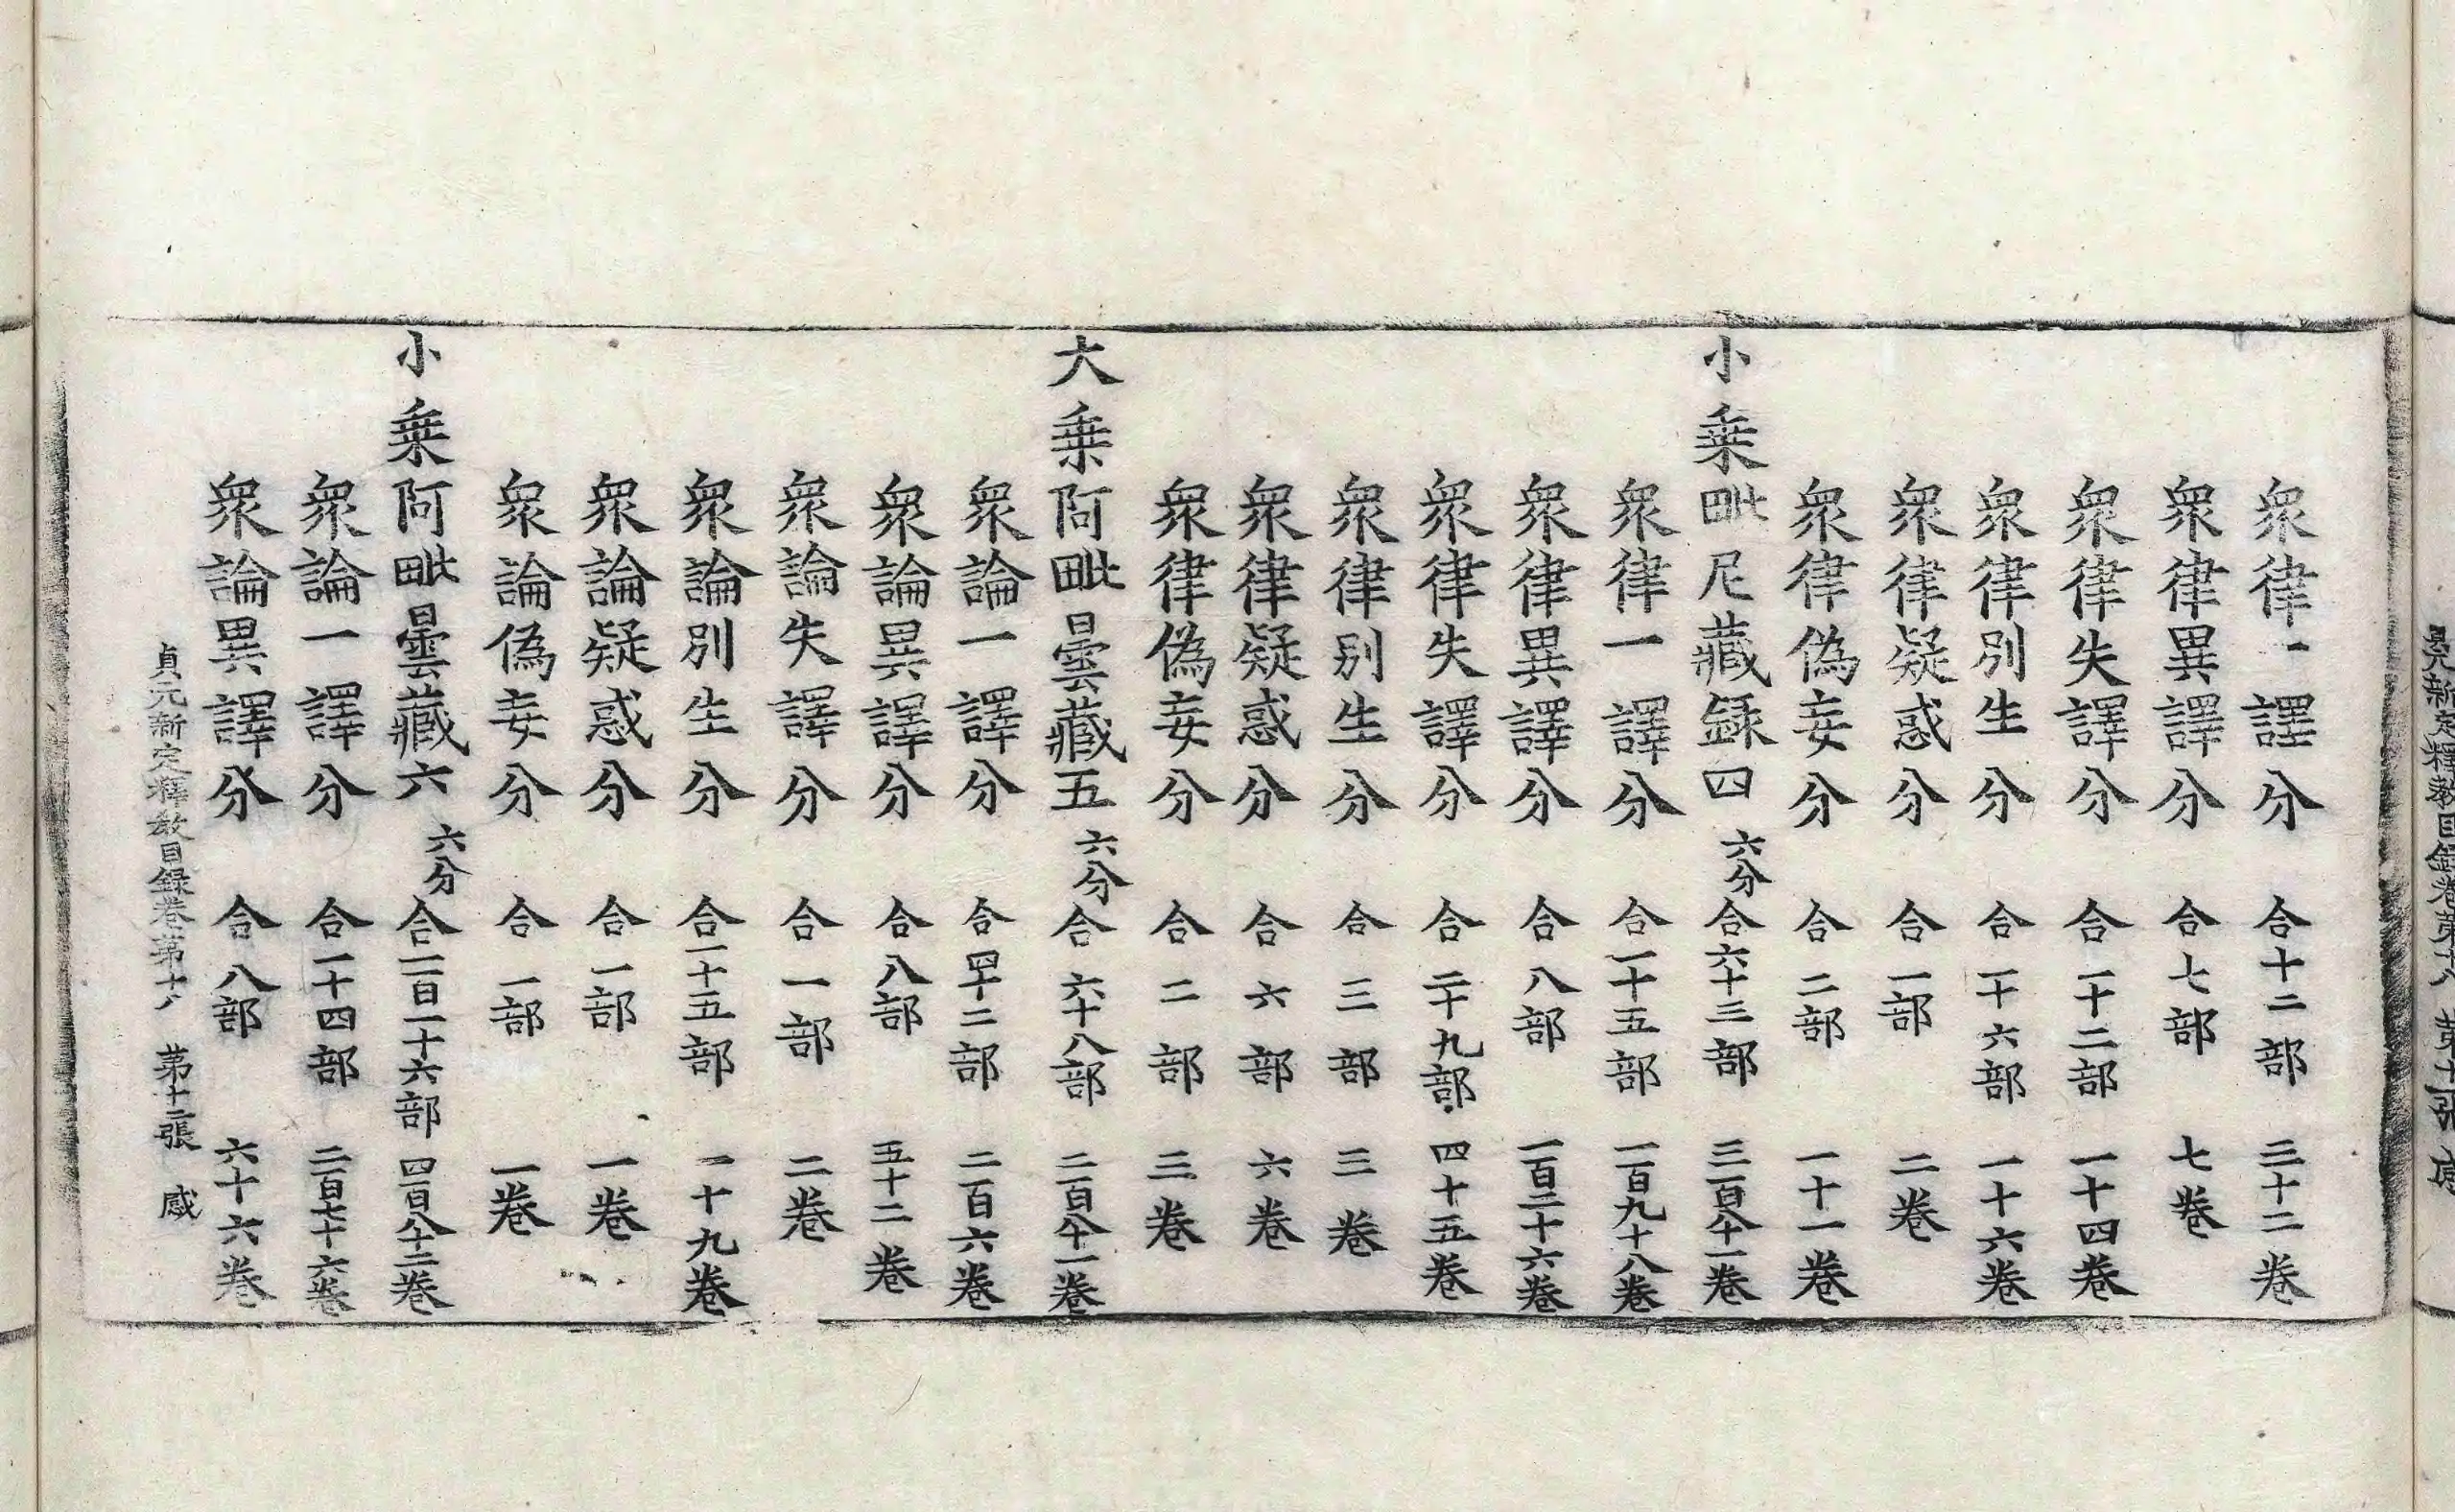 眾律一譯分 合十二部 三十二卷
眾律異譯分 合七部 七卷
眾律失譯分 合一十二部 一十四卷
眾律別生分 合一十六部 一十六卷
眾律疑惑分 合一部 二卷
眾律偽妄分 合二部 一十一卷
小乗毗尼藏録四 六分 合六十三部 三百八十一卷
眾律一譯分 合一十五部 一百九十八卷
眾律異譯分 合八部 一百二十六卷
眾律失譯分 合二十九部 四十五卷
眾律別生分 合三部 三卷
眾律疑惑分 合六部 六卷
眾律偽妄分 合二部 三卷
大乗阿毗曇藏五 六分 合六十八部 二百八十一卷
眾論一譯分 合四十二部 二百六卷
眾論異譯分 合八部 五十二卷
眾論失譯分 合一部 二卷
眾論別生分 合一十五部 一十九卷
眾論疑惑分 合一部 一卷
眾論偽妄分 合一部 一卷
小乗阿毗曇藏六 六分 合一百一十六部 四百八十二卷
眾論一譯分 合一十四部 二百七十六卷
眾論異譯分 合八部 六十六卷
貞元新定釋教目録卷第十八 第十二張 感